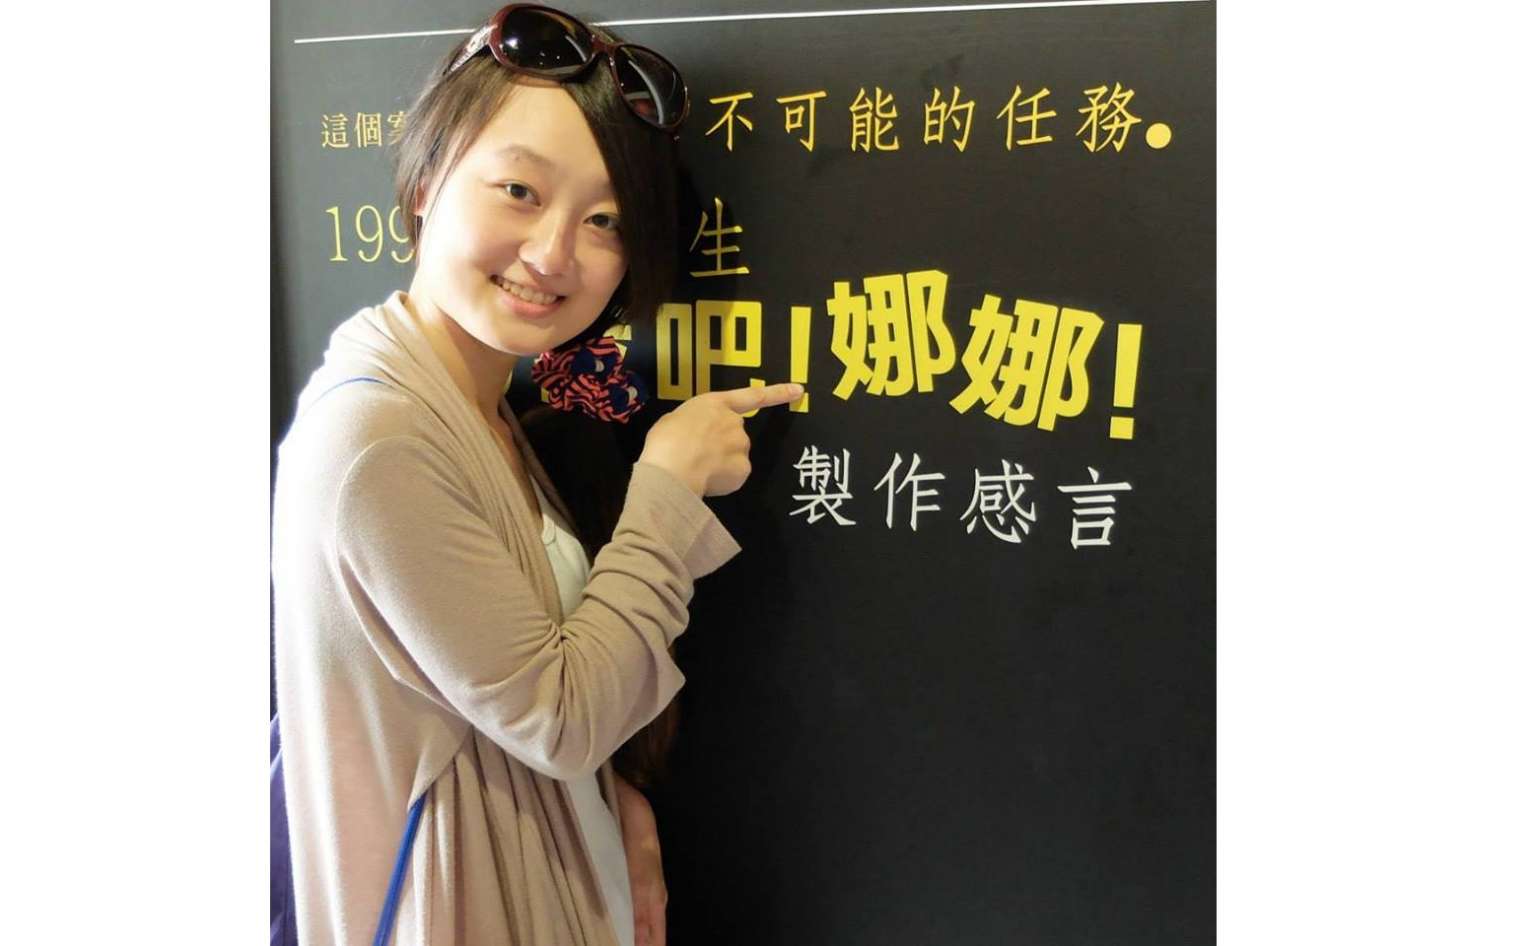 這個案 不可能的任務.
199 生
吧!娜娜!
製作感言